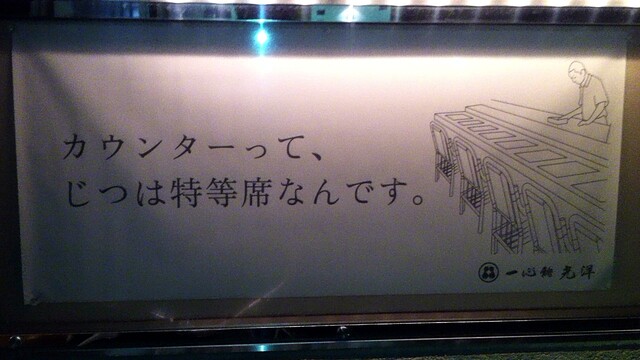 カウンターって、
じつは特等席なんです。
一心鮨 光洋